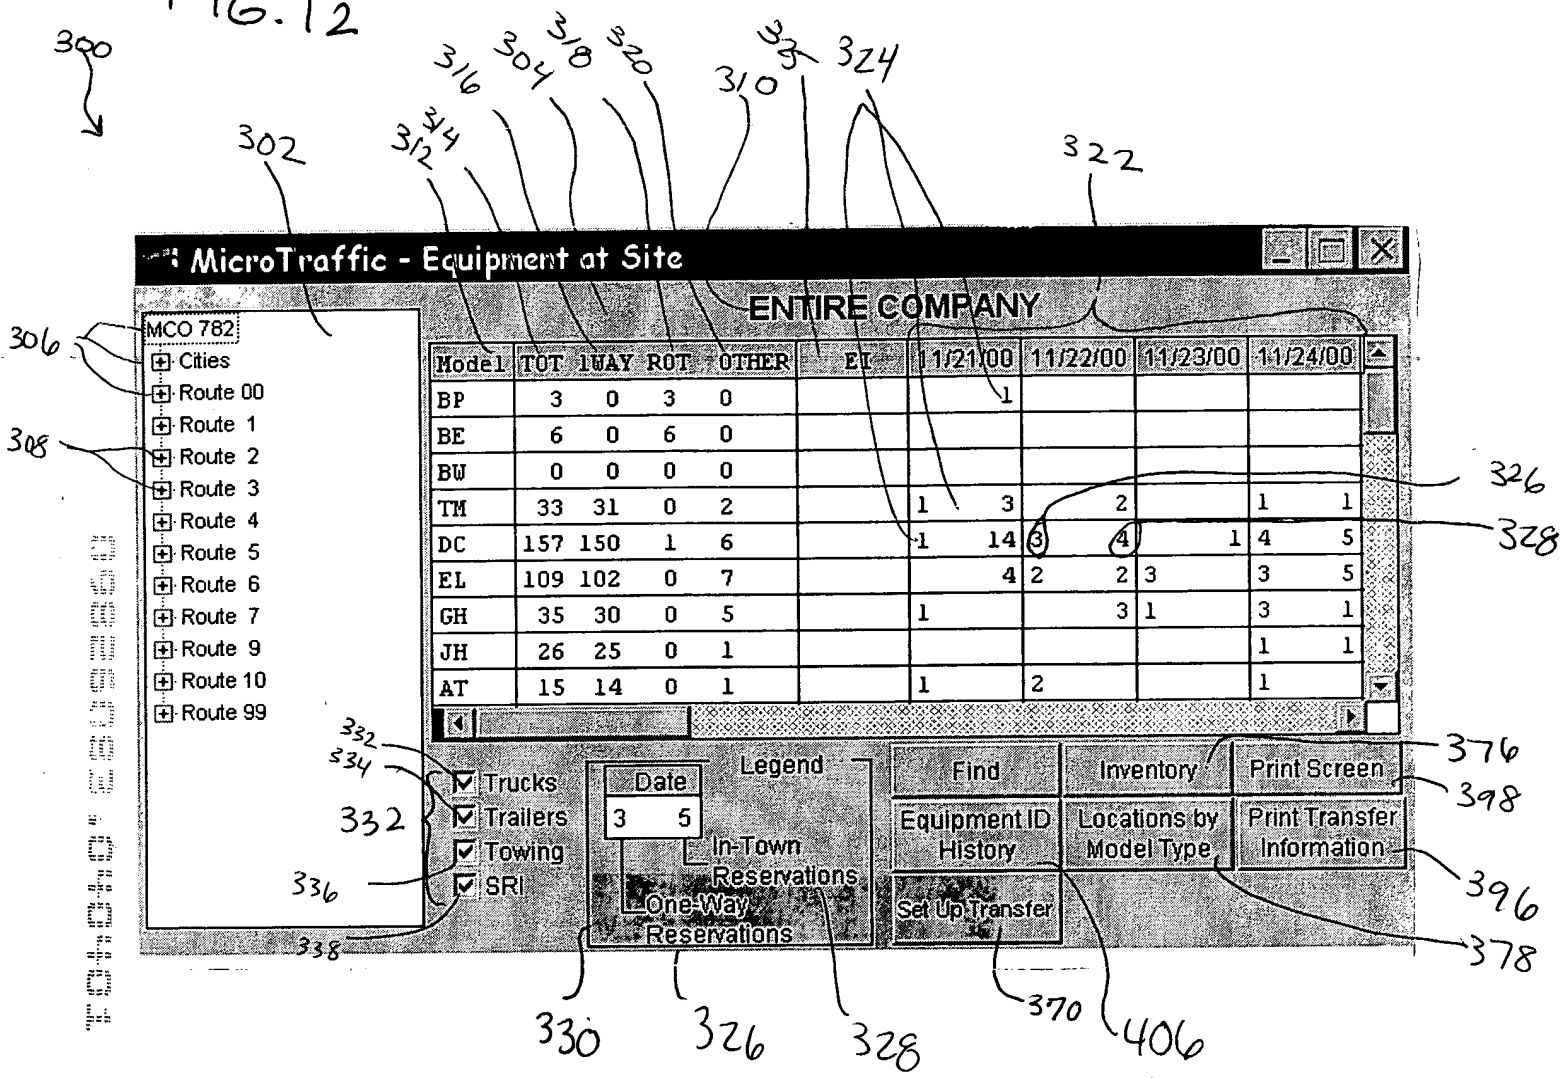 FIG. 12
300
302
312
314
316
304
318
320
310
324
322
MicroTraffic - Equipment at Site
ENTIRE COMPANY
306
308
MCO 782
Cities
Route 00
Route 1
Route 2
Route 3
Route 4
Route 5
Route 6
Route 7
Route 9
Route 10
Route 99
Model TOT 1WAY ROT OTHER EI 11/21/00 11/22/00 11/23/00 11/24/00
BP 3 0 3 0 1
BE 6 0 6 0
BW 0 0 0 0
TM 33 31 0 2 1 3 2 1 1
DC 157 150 1 6 1 14 3 4 1 4 5
EL 109 102 0 7 4 2 2 3 3 5
GH 35 30 0 5 1 3 1 3 1
JH 26 25 0 1 1 1
AT 15 14 0 1 1 2 1
326
328
332
334
332
336
338
Trucks
Trailers
Towing
SRI
Legend
Date
3 5
In-Town
Reservations
One-Way
Reservations
Find
Inventory
Print Screen
Equipment ID
History
Locations by
Model Type
Print Transfer
Information
Set Up Transfer
376
398
396
378
330
326
328
370
406